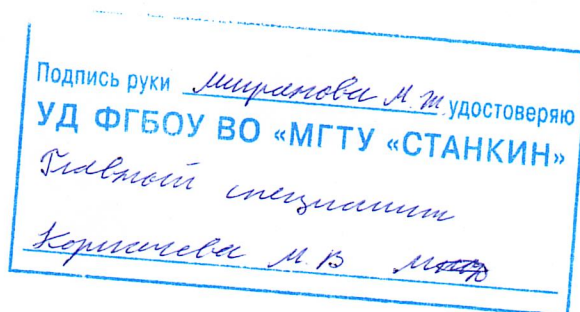 Подпись руки Миранова М.Ж. удостоверяю
УД ФГБОУ ВО «МГТУ «СТАНКИН»
Главный специалист
М.В.